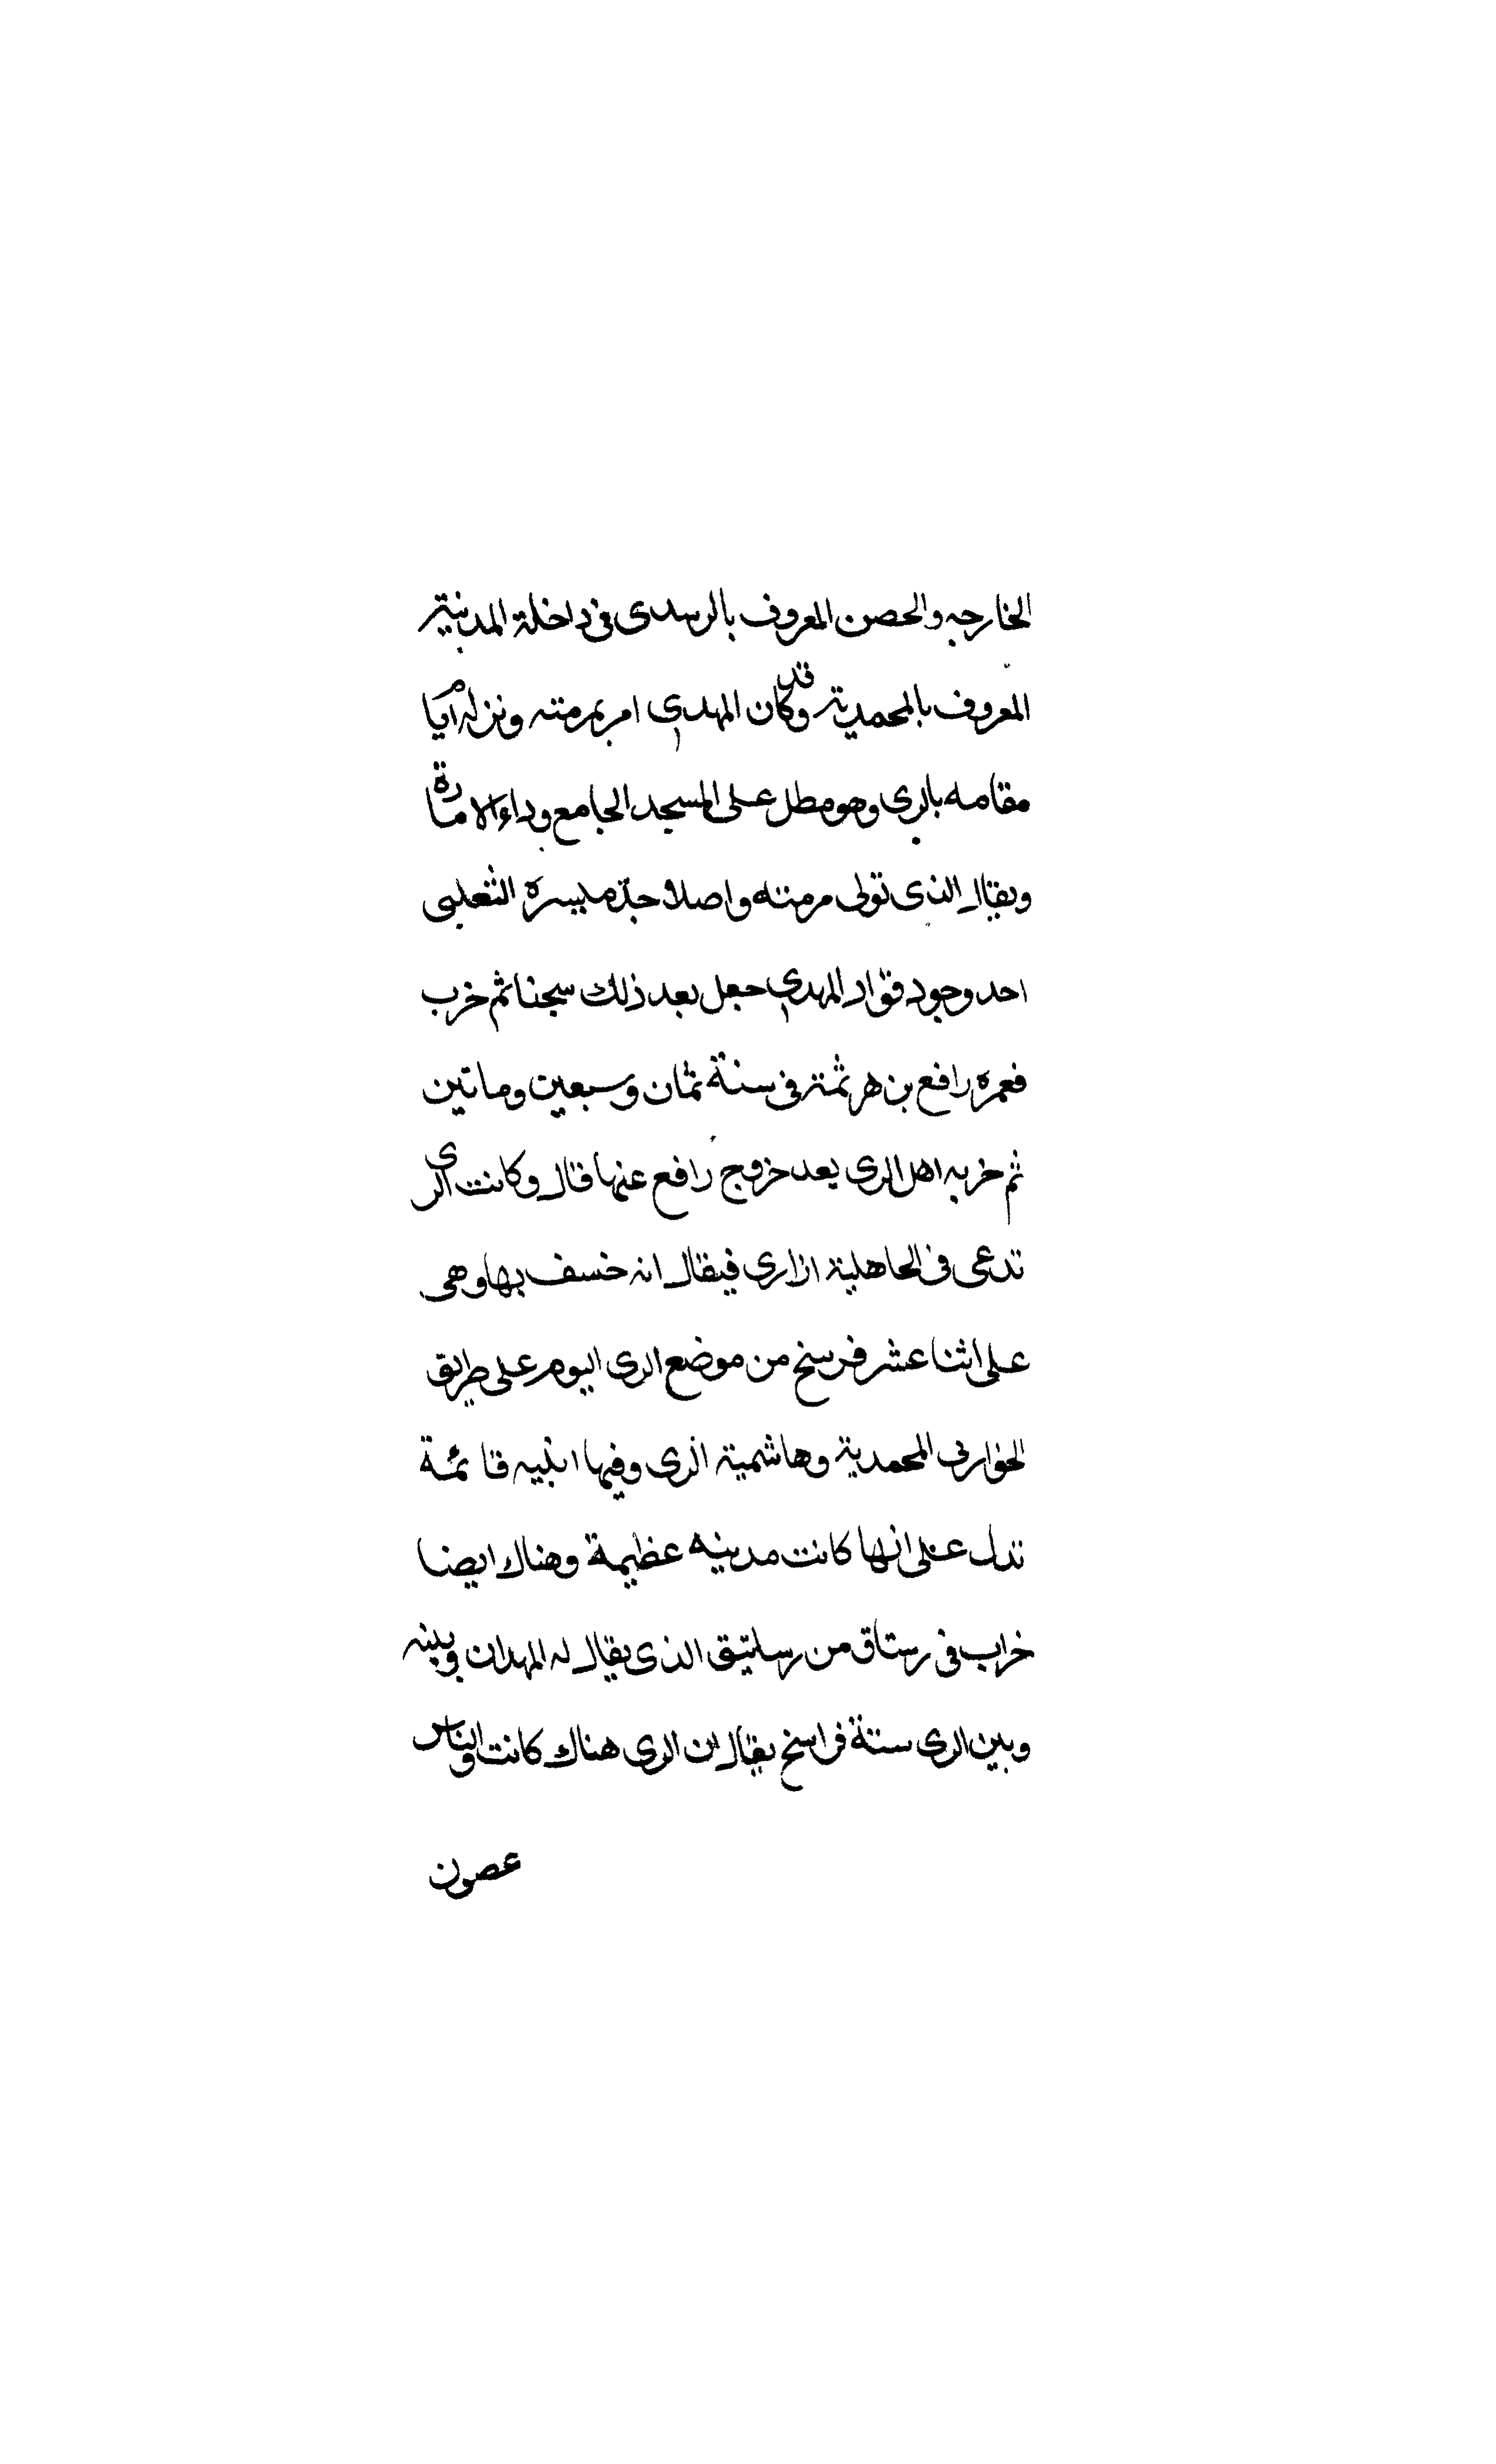 الخارجه والحصن المعروف بالرسدى فى داخلة المدنية
المعروف بالمحمدية وقد كان المهدي امر بمرمته ونزله ايام
مقامه بالرى وهو مطل على المسجد الجامع وداء الامارة
ويقال الذى تولى مرمته واصلا حة ميسرة الثعلبى
احد وجوه قواد المهدي جعل بعد ذلك سجنا ثم خرب
فعمره رافع بن هرثمة فى سنة ثمان وسبعين وماتين
ثم خربه اهل الرى بعد خروج رافع عنها قال وكانت الرى
تدعى فى الجاهلية ازارى فيقال انه خسف بها وهى
على اثنا عشر فرسخ من موضع الرى اليوم على طريق
الخوار بى المحمدية وهاشمية الرى وفيها ابنيه قائمة
تدل على انها كانت مدينه عظيمة وهناك ايضا
خراب فى رستاق من رساتيق الذى يقال له المهدان وبينه
وبين الرى ستة فراسخ يقال ان الرى هناك كانت والناس